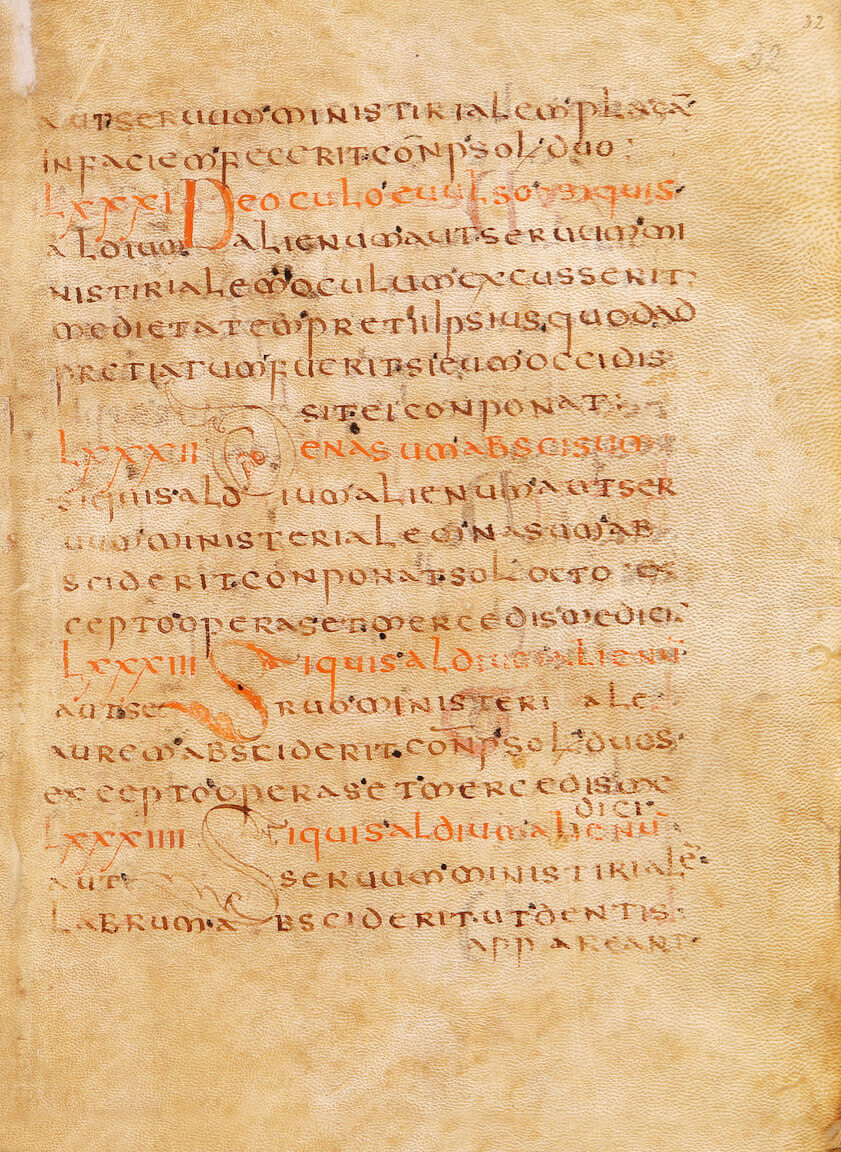 32
32
aut seruum ministirialem placā
in faciem fecerit cōnp sol duo
LXXXI De oculo euulso si quis
aldium alienum aut seruum mi
nistirialem oculum excusserit
medietatem pretii ipsius quod ad
pretiatum fuerit si eum occidis
sit ei conponat
LXXXII De nasum abscisum
si quis aldium alienum aut ser
uum ministerialem nasum ab
sciderit conponat sol octo ex
cepto operas et mercedis medici
LXXXIII Si quis aldium alienū
aut seruum ministeriale
aurem absciderit cōnp sol duos
excepto operas et mercedis me
dici
LXXXIIII Si quis aldium alienū
aut seruum ministirialē
labrum absciderit ut dentis
appareant